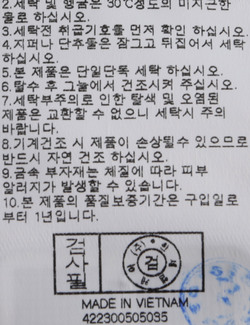 2.세탁 및 헹굼은 30℃정도의 미지근한
물로 하십시오.
3.세탁전 취급기호를 먼저 확인 하십시오.
4.지퍼나 단추등은 잠그고 뒤집어서 세탁
하십시오.
5.본 제품은 단일단독 세탁 하십시오.
6.탈수 후 그늘에서 건조시켜 주십시오.
7.세탁부주의로 인한 탈색 및 오염된
제품은 교환할 수 없으니 세탁시 주의
바랍니다.
8.기계건조 시 제품이 손상될수 있으므로
반드시 자연 건조 하십시오.
9.금속 부자재는 체질에 따라 피부
알러지가 발생할 수 있습니다.
10.본 제품의 품질보증기간은 구입일로
부터 1년입니다.
검사필
검
MADE IN VIETNAM
422300505035